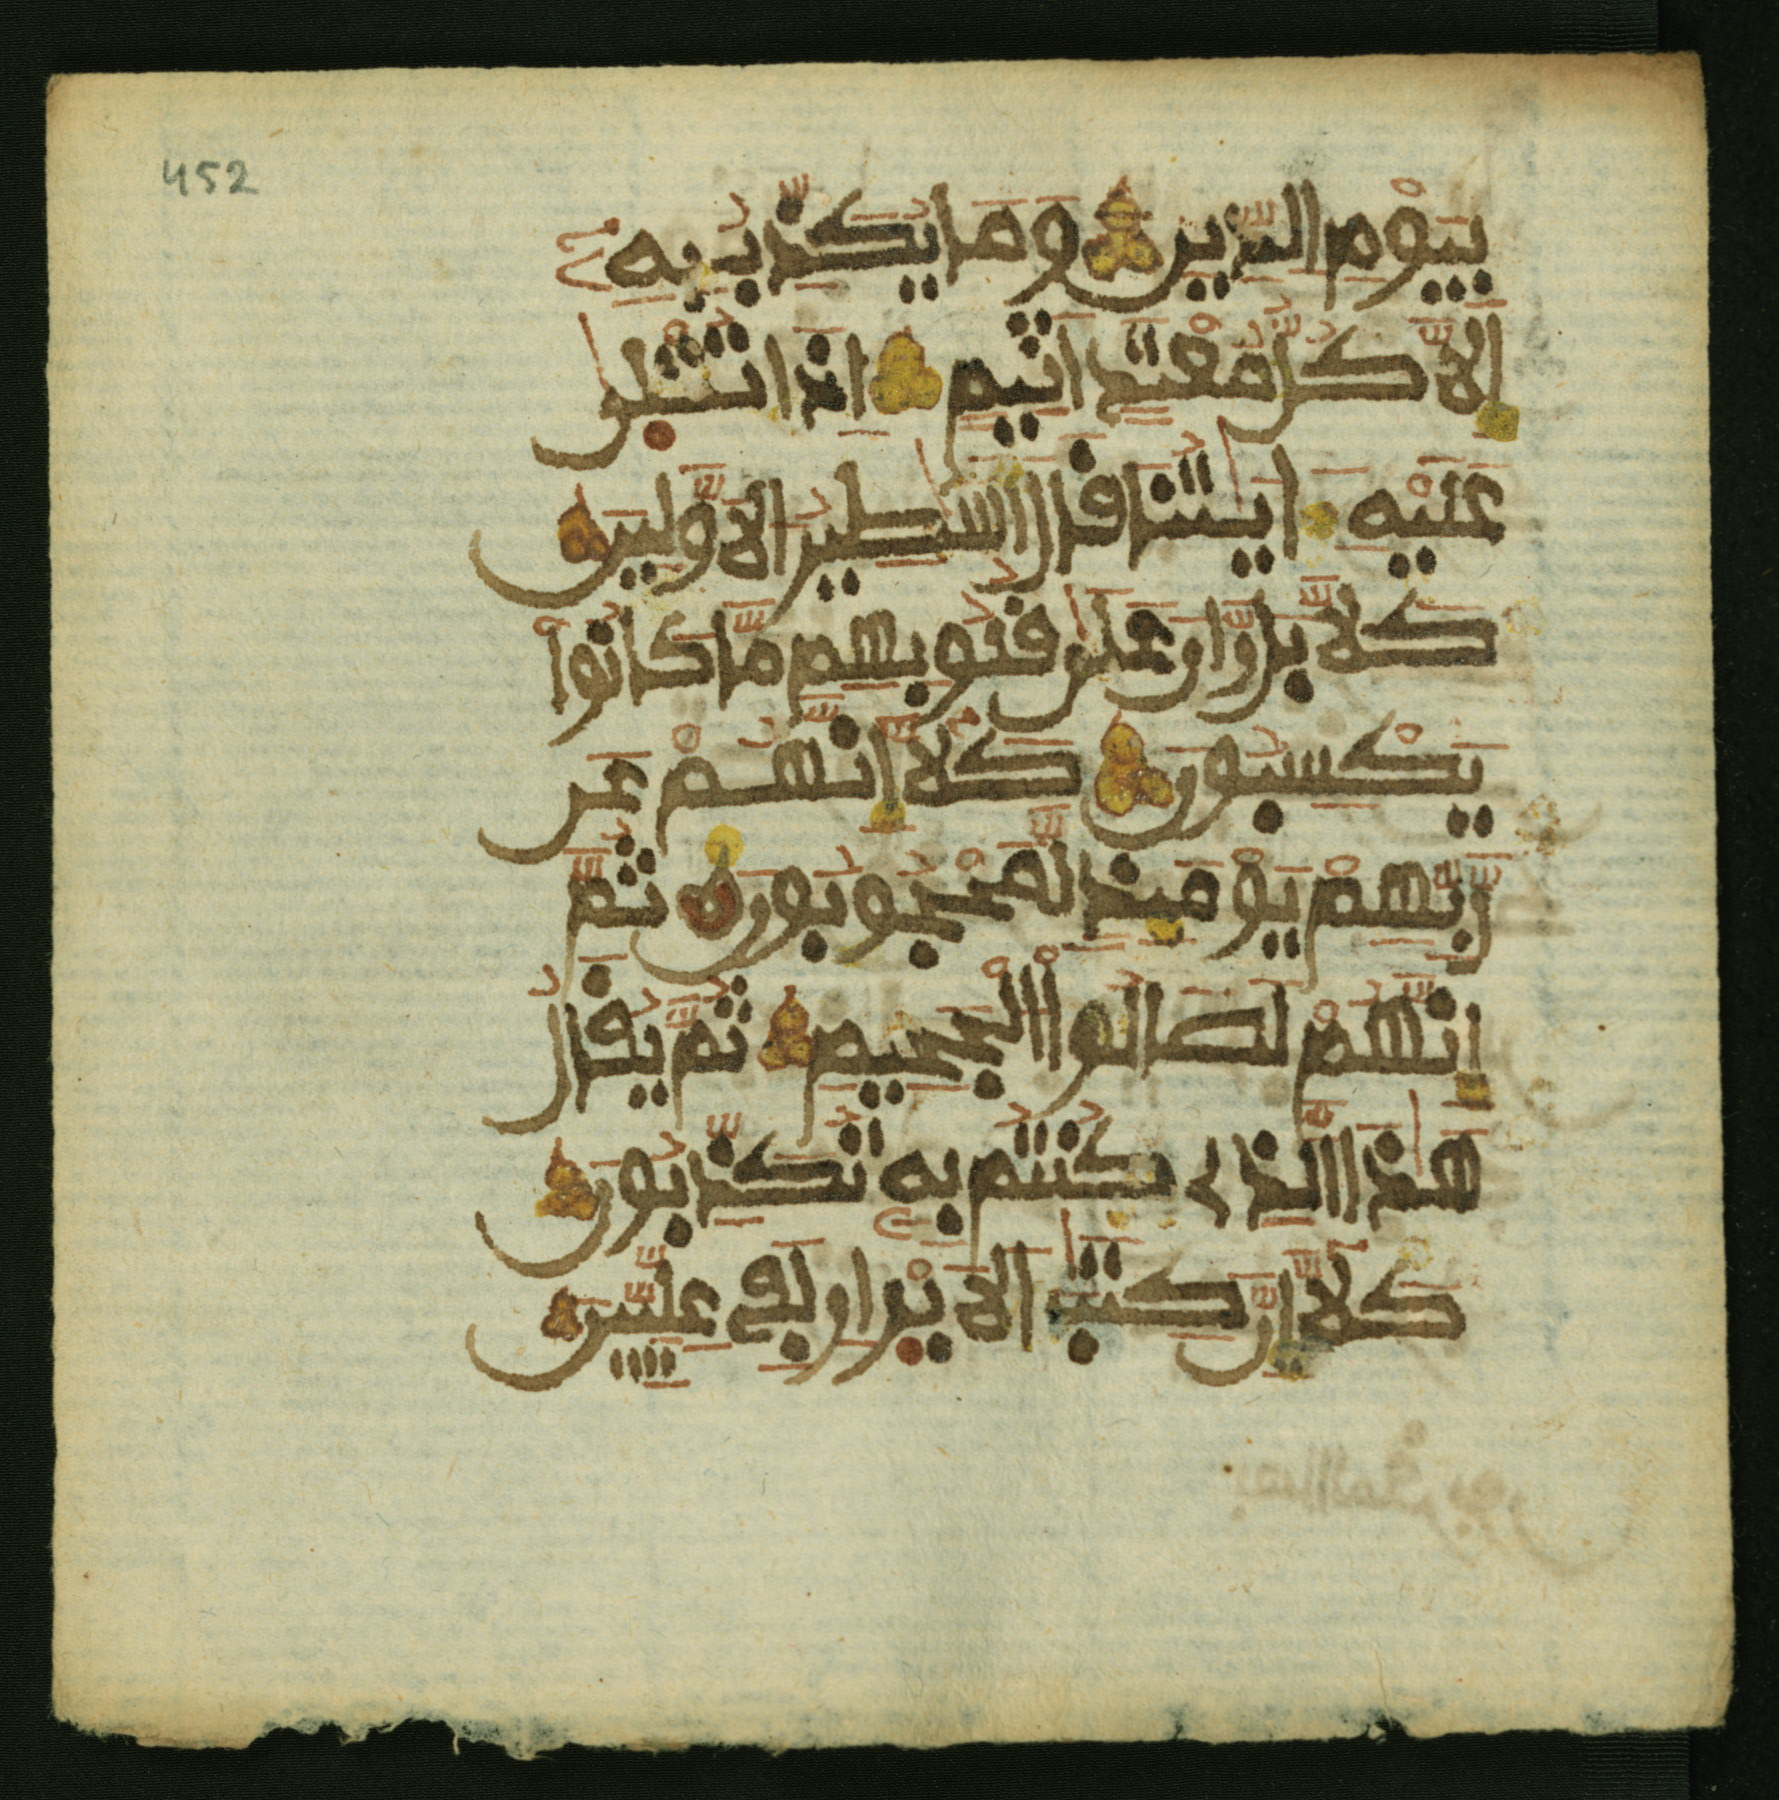 452
بِيَوْمِ الدِّينِ وَمَا يُكَذِّبُ بِهِ
إِلَّا كُلُّ مُعْتَدٍ أَثِيمٍ إِذَا تُتْلَىٰ
عَلَيْهِ ءَايَٰتُنَا قَالَ أَسَٰطِيرُ الْأَوَّلِينَ
كَلَّا بَل رَّانَ عَلَىٰ قُلُوبِهِم مَّا كَانُوا
يَكْسِبُونَ كَلَّا إِنَّهُمْ عَن
رَّبِّهِمْ يَوْمَئِذٍ لَّمَحْجُوبُونَ ثُمَّ
إِنَّهُمْ لَصَالُوا الْجَحِيمِ ثُمَّ يُقَالُ
هَٰذَا الَّذِي كُنتُم بِهِ تُكَذِّبُونَ
كَلَّا إِنَّ كِتَٰبَ الْأَبْرَارِ لَفِي عِلِّيِّينَ